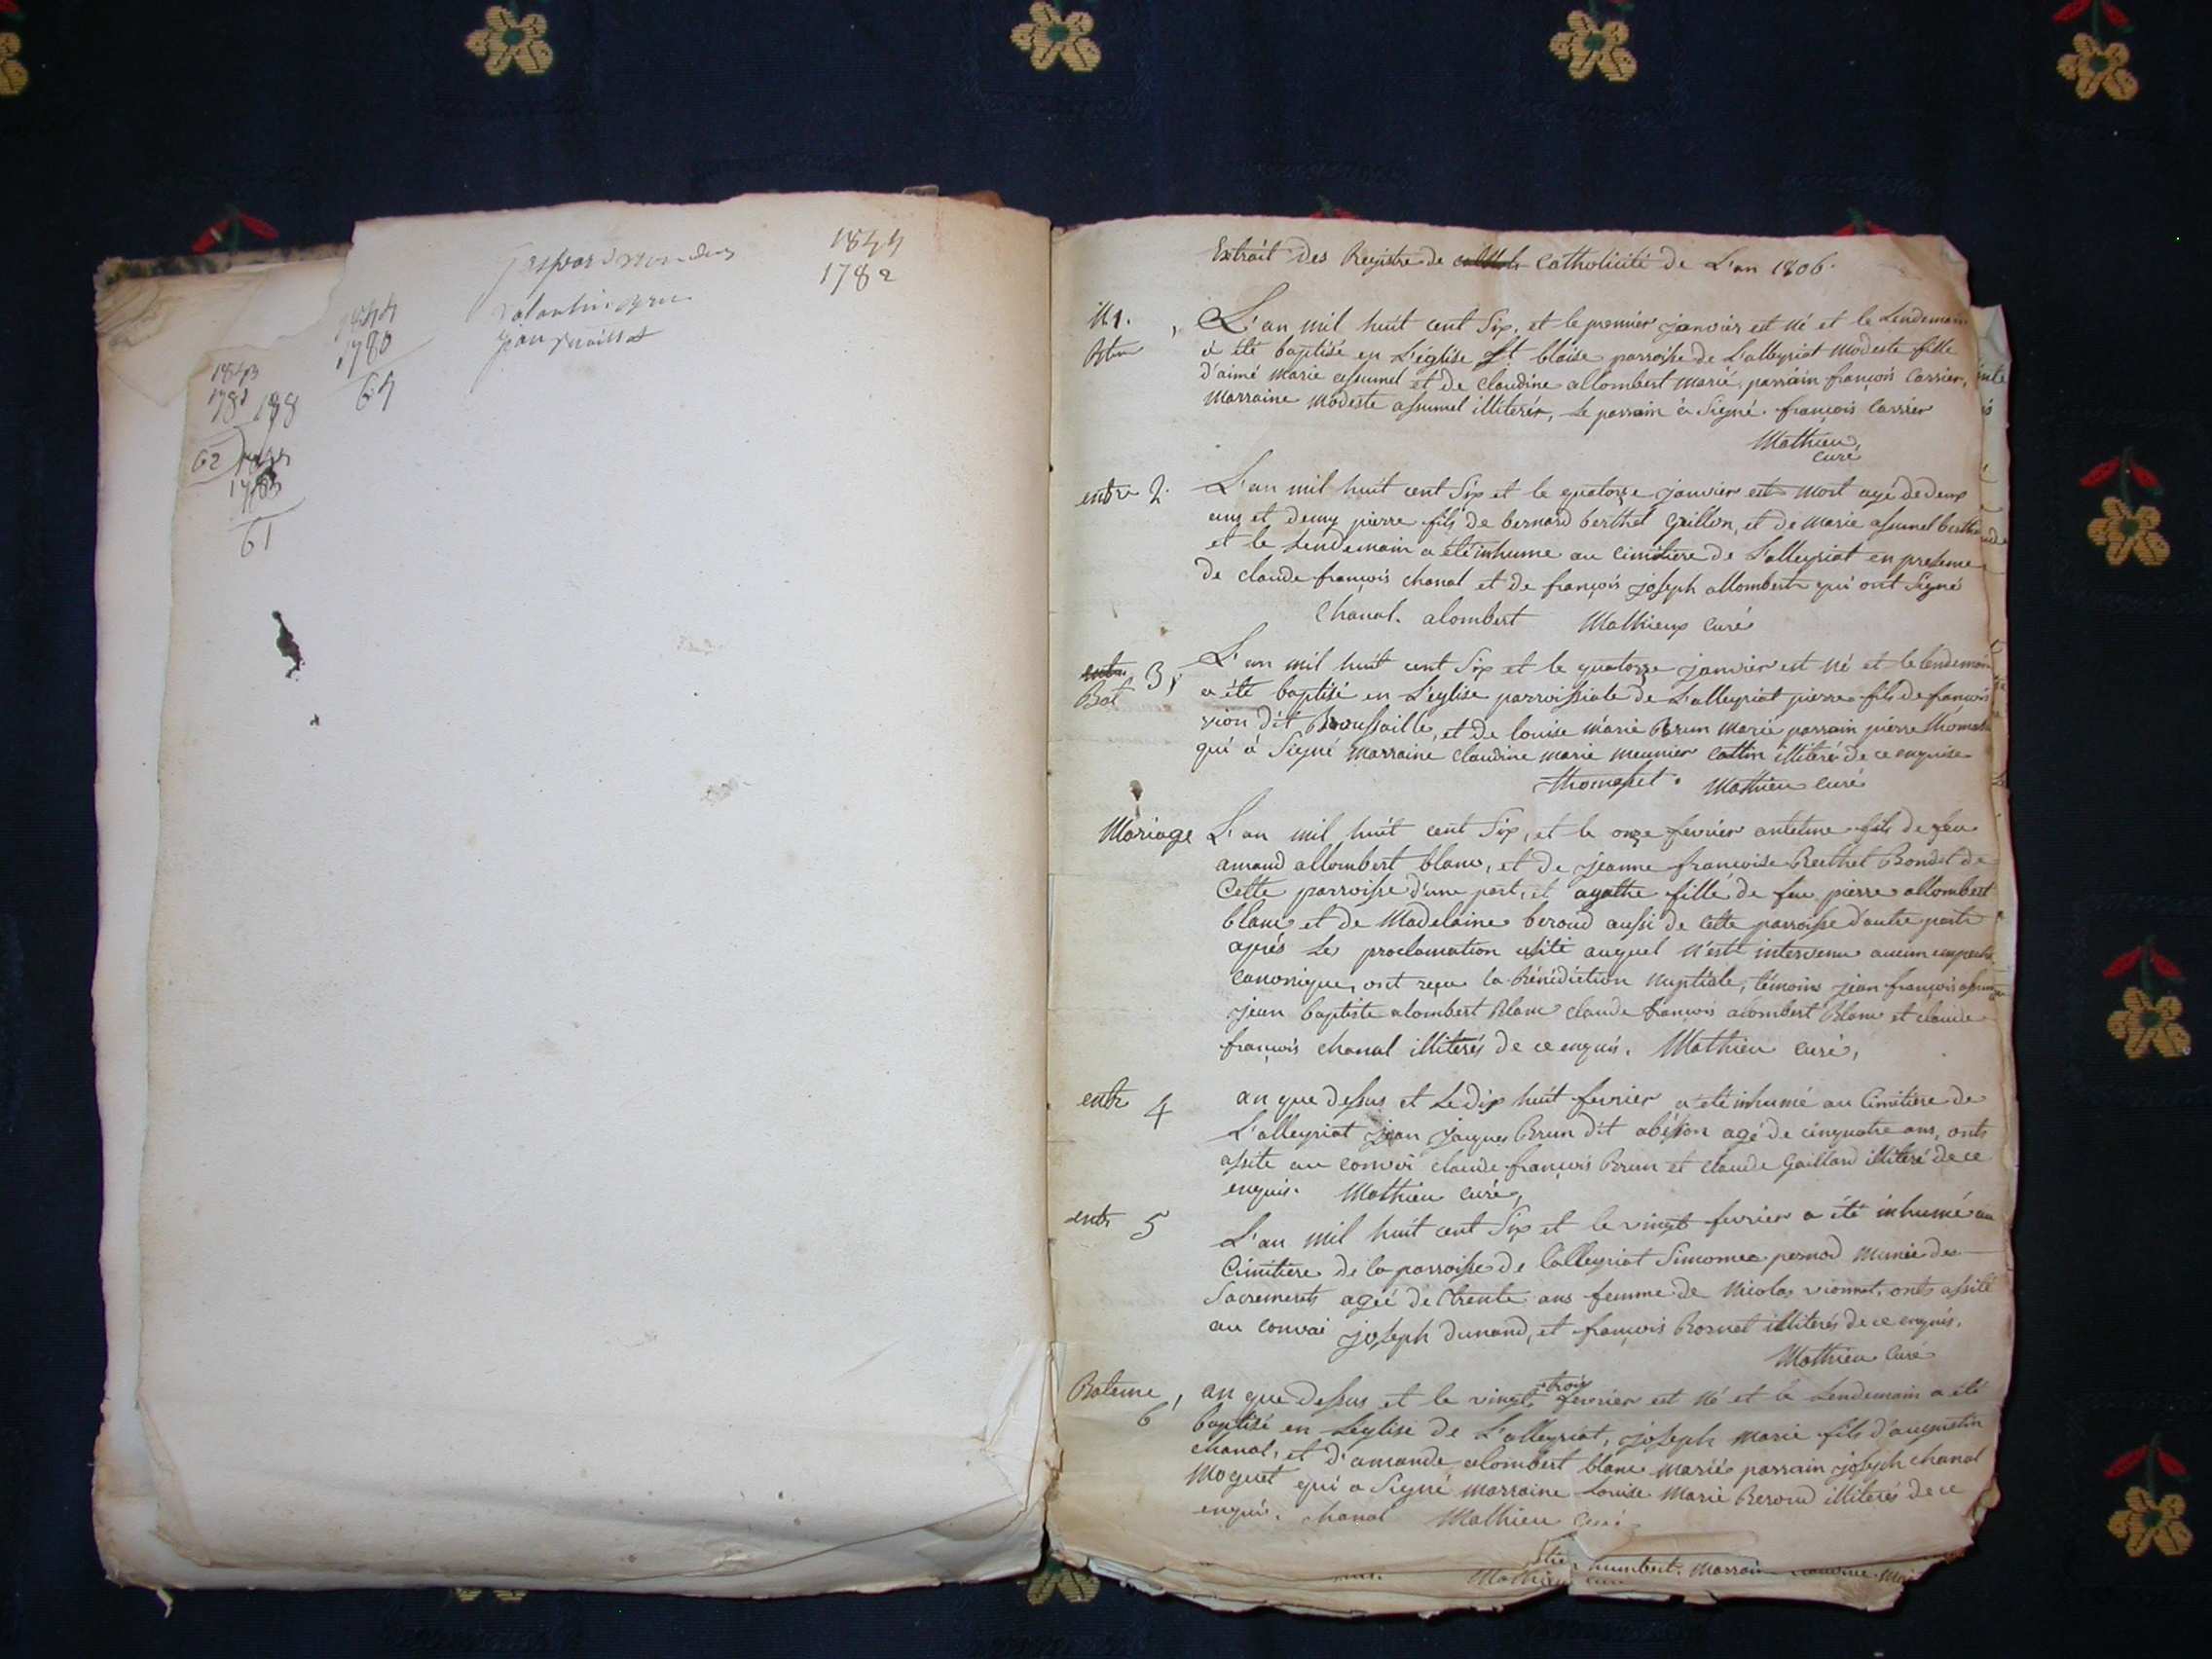 1844
1782
jean
1844
1780
64
1843
178
188
62
61
Extrait des Registre de Catholicité de L'an 1806.
N. 1. L'an mil huit cent Six, et le premier janvier est né et le Lendemain
a été baptisé en L'église St blaise parroisse de Lalleyriat modeste fille
d'aimé marie assumel et de claudine allombert marié, parrain françois Carrier,
marraine modeste assumel illiterés, le parrain a Signé. françois Carrier
Mathieu,
curé
entr 2. L'an mil huit cent Six et le quatorze janvier est mort agé de deux
ans et demy pierre fils de bernard berthet Grillon, et de marie assumel
et le Lendemain a été inhume au cimitiere de Lalleyriat en presence
de claude françois chanal et de françois joseph allombert qui ont Signé
Chanal. alombert Mathieux curé
entr 3, L'an mil huit cent Six et le quatorze janvier est né et le lendemain
Bat a été baptisé en L'eglise parroissiale de Lalleyriat pierre fils de françois
vion dit Broussaille, et de louise marie Brun marié parrain pierre
qui a Signé marraine claudine marie meunier Cattin illiteré de ce enquise
thomasset. Mathieu curé
Mariage L'an mil huit cent Six, et le onze fevrier antelme fils de feu
amand allombert blanc, et de jeanne françoise Berthet Bondet de
Cette parroisse d'une part, et agathe fille de feu pierre allombert
blanc et de Madelaine beroud aussi de cette parroisse d'autre part
aprés les proclamation auquel n'est intervenu aucun
canonique, ont reçu la bénédiction nuptiale, témoins jean françois
jean baptiste alombert Blanc claude françois alombert Blanc et claude
françois chanal illiterés de ce enquis. Mathieu curé,
entr 4 an que dessus et Le dix huit fevrier a été inhumé au Cimitiere de
L'alleyriat jean jaques Brun dit agé de cinquate ans, onts
assite au convoi claude françois Brun et claude Gaillard illiteré de ce
enquis. Mathieu curé,
entr 5 L'an mil huit cent Six et le vingt fevrier a été inhumé au
Cimitiere de la parroisse de Lalleyriat pernod munie des
Sacrements agée de trente ans femme de Nicolas vionnet, onts assité
au convai joseph dunand, et françois illiterés de ce enquis.
Mathieu Curé
Bateme, an que dessus et le vingt trois fevrier est né et le Lendemain a été
6 baptisé en L'eglise de L'alleyriat, joseph marie fils d'augustin
chanal, et d'amande alombert blanc mariés parrain joseph chanal
Moquet qui a Signé marraine Louise Marie Beroud illiterés de ce
enquis. chanal Mathieu Curé
humbert. Marraine
Mathieu